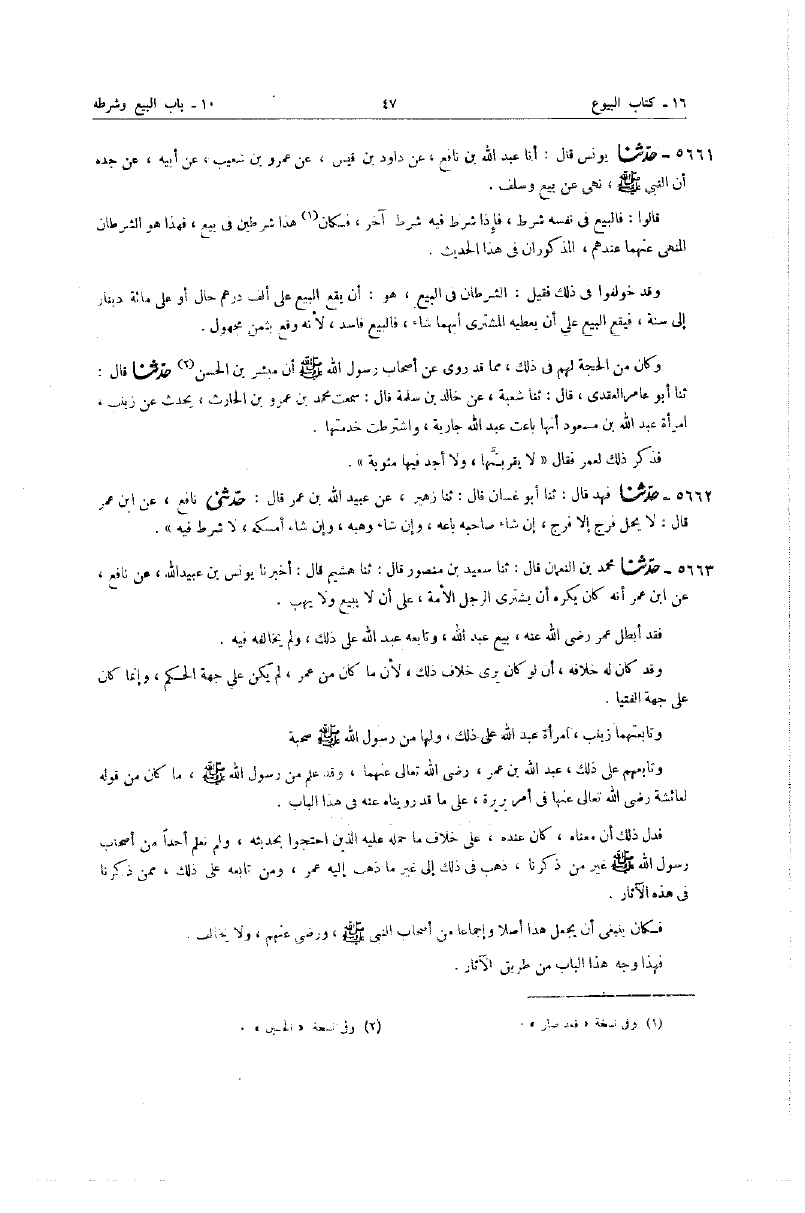 ١٦ - كتاب البيوع ٤٧ ١٠ - باب البيع وشرطه
٥٦٦١ - حدثنا يونس قال : أنا عبد الله بن نافع ، عن داود بن قيس ، عن عمرو بن شعيب ، عن أبيه ، عن جده
أن النبي ﷺ ، نهى عن بيع وسلف .
قالوا : فالبيع فى نفسه شرط ، فإذا شرط فيه شرط آخر ، فكان(١) هذا شرطين فى بيع ، فهذا هو الشرطان
المنهى عنهما عندهم ، المذكوران فى هذا الحديث .
وقد خولفوا فى ذلك فقيل : الشرطان فى البيع ، هو : أن يقع البيع على ألف درهم حال أو على مائة دينار
إلى سنة ، فيقع البيع على أن يعطيه المشترى أيهما شاء ، فالبيع فاسد ، لأنه وقع بثمن مجهول .
وكان من الحجة لهم فى ذلك ، مما قد روى عن أصحاب رسول الله ﷺ أن مبشر بن الحسن(٢) حدثنا قال :
ثنا أبو عامر العقدى ، قال : ثنا شعبة ، عن خالد بن سلمة قال : سمعت محمد بن عمرو بن الحارث ، يحدث عن زينب ،
امرأة عبد الله بن مسعود أنها باعت عبد الله جارية ، واشترطت خدمتها .
فذكر ذلك لعمر فقال « لا يقربنَّها ، ولا أجد فيها مثوبة » .
٥٦٦٢ - حدثنا فهد قال : ثنا أبو غسان قال : ثنا زهير ، عن عبيد الله بن عمر قال : حدثنى نافع ، عن ابن عمر
قال : لا يحل فرج إلا فرج ، إن شاء صاحبه باعه ، وإن شاء وهبه ، وإن شاء أمسكه ، لا شرط فيه » .
٥٦٦٣ - حدثنا محمد بن النعمان قال : ثنا سعيد بن منصور قال : ثنا هشيم قال : أخبرنا يونس بن عبيدالله ، عن نافع ،
عن ابن عمر أنه كان يكره أن يشترى الرجل الأمة ، على أن لا يبيع ولا يهب .
فقد أبطل عمر رضى الله عنه ، بيع عبد الله ، وتابعه عبد الله على ذلك ، ولم يخالفه فيه .
وقد كان له خلافه ، أن لو كان يرى خلاف ذلك ، لأن ما كان من عمر ، لم يكن على جهة الحكم ، وإنما كان
على جهة الفتيا .
وتابعتهما زينب ، امرأة عبد الله على ذلك ، ولها من رسول الله ﷺ صحبة
وتابعهم على ذلك ، عبد الله بن عمر ، رضى الله تعالى عنهما ، وقد علم من رسول الله ﷺ ، ما كان من قوله
لعائشة رضى الله تعالى عنها فى أمر بريرة ، على ما قد رويناه عنه فى هذا الباب .
فدل ذلك أن معناه ، كان عنده ، على خلاف ما حمله عليه الذين احتجوا بحديثه ، ولم نعلم أحداً من أصحاب
رسول الله ﷺ غير من ذكرنا ، ذهب فى ذلك إلى غير ما ذهب إليه عمر ، ومن تابعه على ذلك ، ممن ذكرنا
فى هذه الآثار .
فكان ينبغى أن يجعل هذا أصلا وإجماعا من أصحاب النبى ﷺ ، ورضى عنهم ، ولا يخالف .
فهذا وجه هذا الباب من طريق الآثار .
(١) وفى نسخة « فقد صار » . (٢) وفى نسخة « الحسين » .